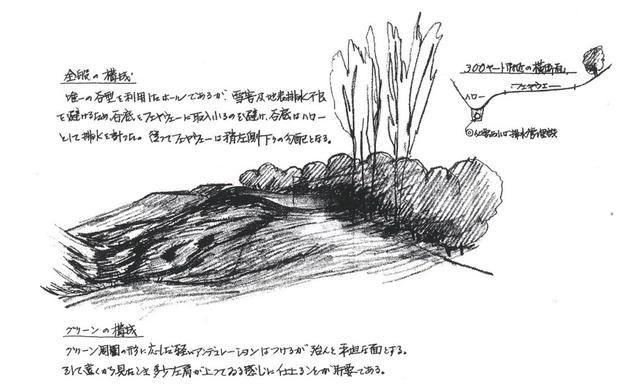 全般の構成
唯一の谷型を利用したホールであるが、雪害及地表排水不良
を避けるため、谷底をフェヤウェーに取入れるのを避け、谷底はハロー
として排水を計った。従ってフェヤウェーは稍左側下りの勾配となる。
300ヤード附近の横断面
フェヤウェー
ハロー
排水管埋設
グリーンの構成
グリーン周囲の形に応じた軽いアンデュレーションはつけるが殆んど平坦な面とする。
そして遠くから見たとき多少左肩が上ってゐる感じに仕上ることが肝要である。